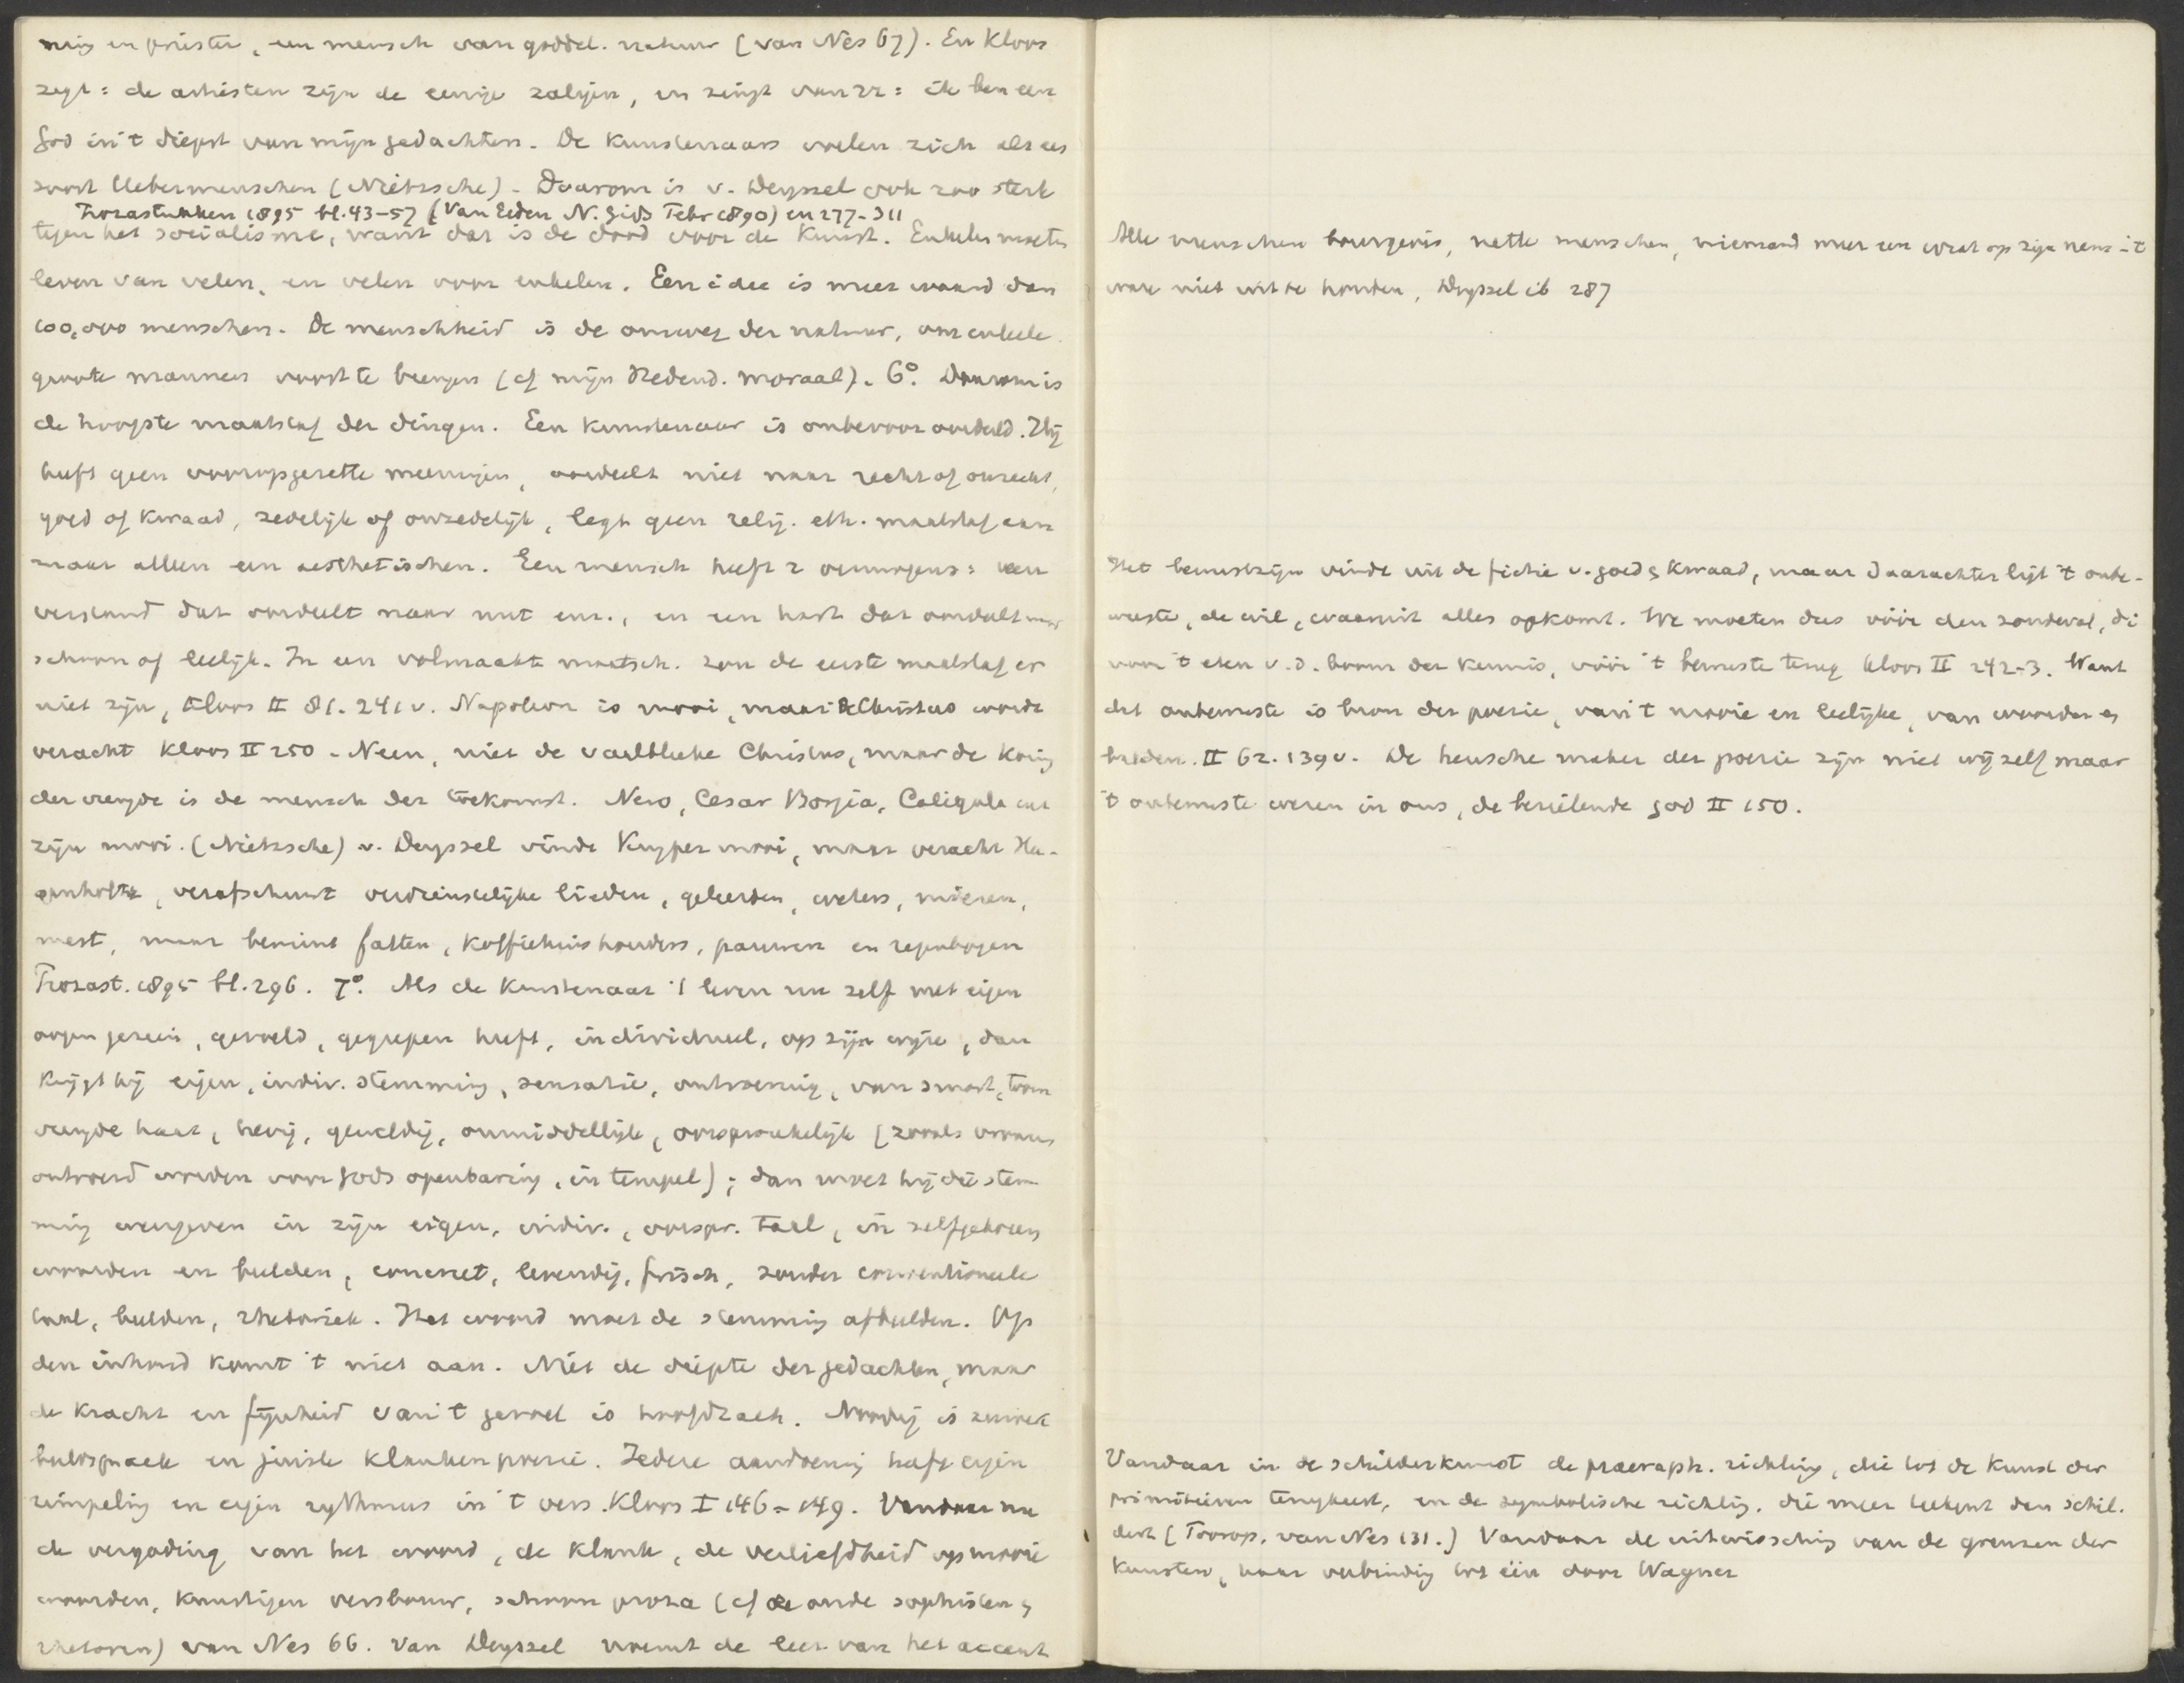 ning en priester, een mensch van goddel. natuur (van Nes 67). En Kloos
zegt: de artisten zijn de eenige zaligen, en zingt van zz: ik ben een
God in 't diepst van mijn gedachten. De Kunstenaars voelen zich als een
soort Uebermenschen (Nietzsche) - Daarom is v. Deyssel ook zoo sterk
Prozastukken 1895 bl. 43-57 (Van Eeden N. Gids Febr 1890) en 277-311
tegen het socialisme, want dat is de dood voor de Kunst. Enkelen moeten
leven van velen, en velen voor enkelen. Een idee is meer waard dan
100,000 menschen. De menschheid is de omweg der natuur, om enkele
groote mannen voort te brengen (cf mijn Hedend. moraal). 6°. Daarom is
de hoogste maatstaf der dingen. Een kunstenaar is onbevooroordeeld. Hij
heeft geen vooropgezette meeningen, oordeelt niet naar recht of onrecht,
goed of Kwaad, zedelijk of onzedelijk, legt geen relig. eth. maatstaf aan
maar alleen een aesthetischen. Een mensch heeft 2 vermogens: een
verstand dat oordeelt naar nut enz., en een hart dat oordeelt naar
schoon of leelijk. In een volmaakte maatsch. zou de eerste maatstaf er
niet zijn, Kloos II 81. 241 v. Napoleon is mooi, maar de Christus wordt
veracht Kloos II 250 - Neen, niet de Christus, maar de Konig
der vreugde is de mensch der toekomst. Nero, Cesar Borgia, Caligula enz
zijn mooi. (Nietzsche) v. Deyssel vindt Kuyper mooi, maar veracht
verafschuwt verdienstelijke lieden, geleerden, wevers, mieren,
mest, maar bemint fatten, Koffiehuishouders, pauwen en regenbogen
Prozast. 1895 bl. 296. 7°. Als de Kunstenaar 't leven nu zelf met eigen
oogen gezien, gevoeld, gegrepen heeft, individueel, op zijn wijze, dan
krijgt hij eigen, indiv. stemming, sensatie, ontroering, van smart, toorn
vreugde haat, hevig, geweldig, onmiddellijk, oorspronkelijk (zooals vromen
ontroerd worden voor Gods openbaring, in tempel); dan moet hij die stem-
ming weergeven in zijn eigen, indiv., oorspr. taal, in zelfgekozen
woorden en beelden, concreet, levendig, frisch, zonder conventioneele
taal, beelden, rhetoriek. Het woord moet de stemming afbeelden. Op
den inhoud komt 't niet aan. Niet de diepte der gedachten, maar
de kracht en fijnheid van 't gevoel is hoofdzaak. Noodig is zuivere
beeldspraak en juiste klankenpoezie. Iedere aandoening heeft eigen
rimpeling en eigen rythmus in 't vers. Kloos I 146-149. Vandaar nu
de vergoding van het woord, de klank, de verliefdheid op mooie
woorden, kunstigen versbouw, schoon proza (cf de oude sophisten &
rhetoren) van Nes 66. Van Deyssel noemt de leer van het accent
Alle menschen bourgeois, nette menschen, niemand meer een wrat op zijn neus - 't
ware niet uit te houden, Deyssel ib 287
Het bewustzijn vindt uit de fictie v. goed & Kwaad, maar daarachter ligt 't onbe-
wuste, de wil, waaruit alles opkomt. We moeten dus vóór den zondeval, di
voor 't eten v. d. boom der kennis, vóór 't bewuste terug Kloos II 242-3. Want
dat onbewuste is bron der poezie, van 't mooie en leelijke, van woorden en
beelden. II 62. 139 v. De heusche maker der poezie zijn niet wijzelf maar
't onbewuste wezen in ons, de bezielende God II 150.
Vandaar in de schilderkunst de praeraph. richting, die tot de kunst der
primitieven terugkeert, en de symbolische richtig, die meer teekent dan schil-
dert (Toorop, van Nes 131.) Vandaar de uitwissching van de grenzen der
Kunsten, haar verbindig tot één door Wagner